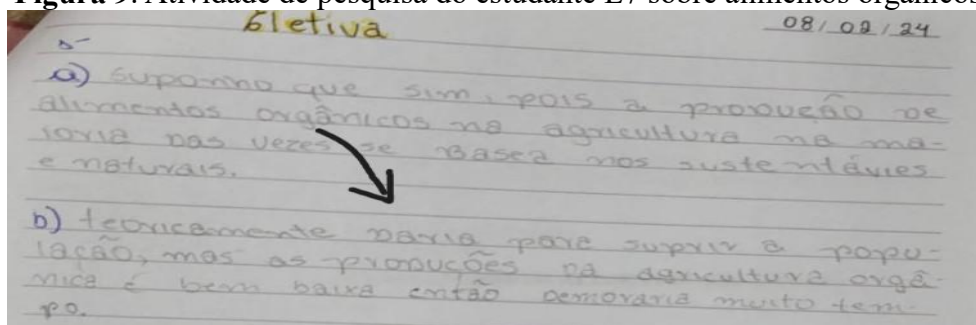 Figura 9. Atividade de pesquisa do estudante E7 sobre alimentos orgânicos
Eletiva 08/02/24
5-
a) suponho que sim, pois a produção de
alimentos orgânicos na agricultura na ma-
ioria das vezes se basea nos sustentávies
e naturais.
b) teoricamente daria para suprir a popu-
lação, mas as produções da agricultura orgâ-
nica é bem baixa então demoraria muito tem-
po.